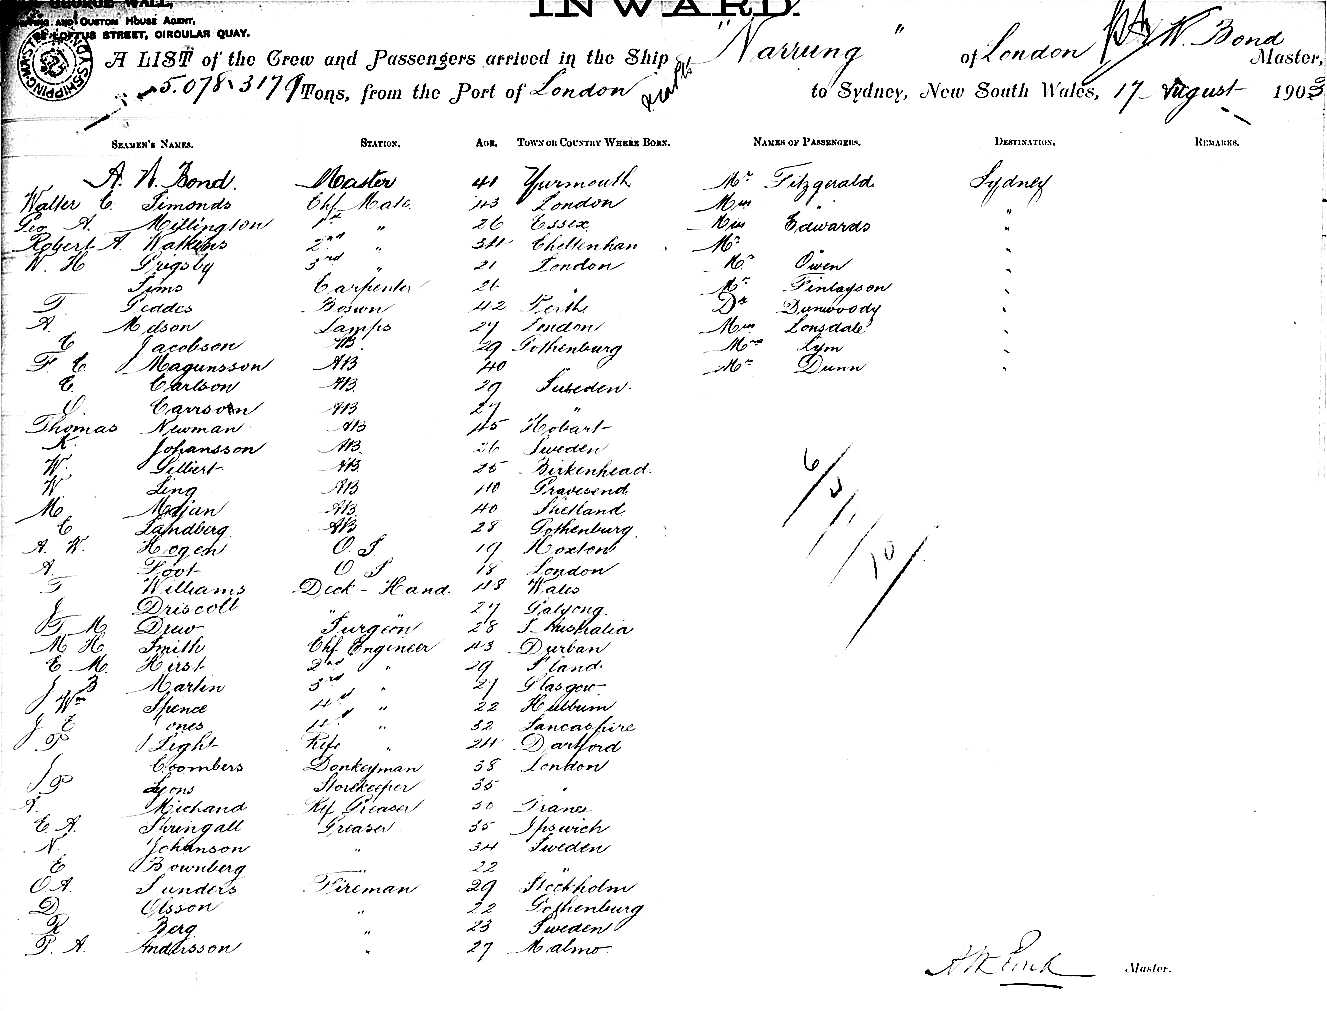 GEORGE WALL,
AND CUSTOM HOUSE AGENT,
LOFTUS STREET, CIRCULAR QUAY.
INWARD.
A LIST of the Crew and Passengers arrived in the Ship "Narrung" of London W. Bond Master,
5.078. 3179 Tons, from the Port of London to Sydney, New South Wales, 17 August 1903
SEAMEN'S NAMES. STATION. AGE. TOWN OR COUNTRY WHERE BORN. NAMES OF PASSENGERS. DESTINATION. REMARKS.
A. W. Bond. Master 41 Yarmouth Mr Fitzgerald Sydney
Walter C. Simonds Chf Mate 43 London Mrs "
Geo A. Millington 1st " 26 Essex Miss Edwards "
Robert A. Watkins 2nd " 34 Cheltenham Mr "
W. H Grigsby 3rd " 21 London Mr Owen "
Sims Carpenter 26 " Mr Finlayson "
T. Geddes Bosun 42 Perth Dr Dunwoody "
A. Mdson Lamps 27 London Miss Lonsdale "
C Jacobson AB 29 Gothenburg Mrs Cym "
F C Magunsson AB 40 Mr Dunn "
C. Carlson AB 29 Sweden.
O. AB 27 "
Thomas Newman AB 45 Hobart
K. Johansson AB 26 Sweden
W. Gilbert AB 25 Birkenhead
W Ling AB 40 Gravesend
M. AB 40 Shetland
C Landberg AB 28 Gothenburg
A. W. Hogen O S 19 Hoxton
A. Foot O S 18 London
T Williams Deck-Hand. 48 Wales
J Driscoll " " 27
T M. Drew Surgeon 28 S. Australia
M H Smith Chf Engineer 43 Durban
E M. Hirst 2nd " 29
J B Martin 3rd " 27 Glasgow
Wm Spence 4th " 22
J E Jones 4th " 32 Lancashire
P Light Rfr " 24 Dartford
J Coombers Donkeyman 38 London
J. P Lyons Storekeeper 35 "
Michand Rfr Greaser 30 France
E A. Springall Greaser 35 Ipswich
N. Johanson " 34 Sweden
E Bownberg " 22 "
O A. Sunders Fireman 29 Stockholm
D. Olsson " 22 Gothenburg
R Berg " 23 Sweden
P. A. Andersson " 27 Malmo
6/3/1/10/
A W Bond Master.